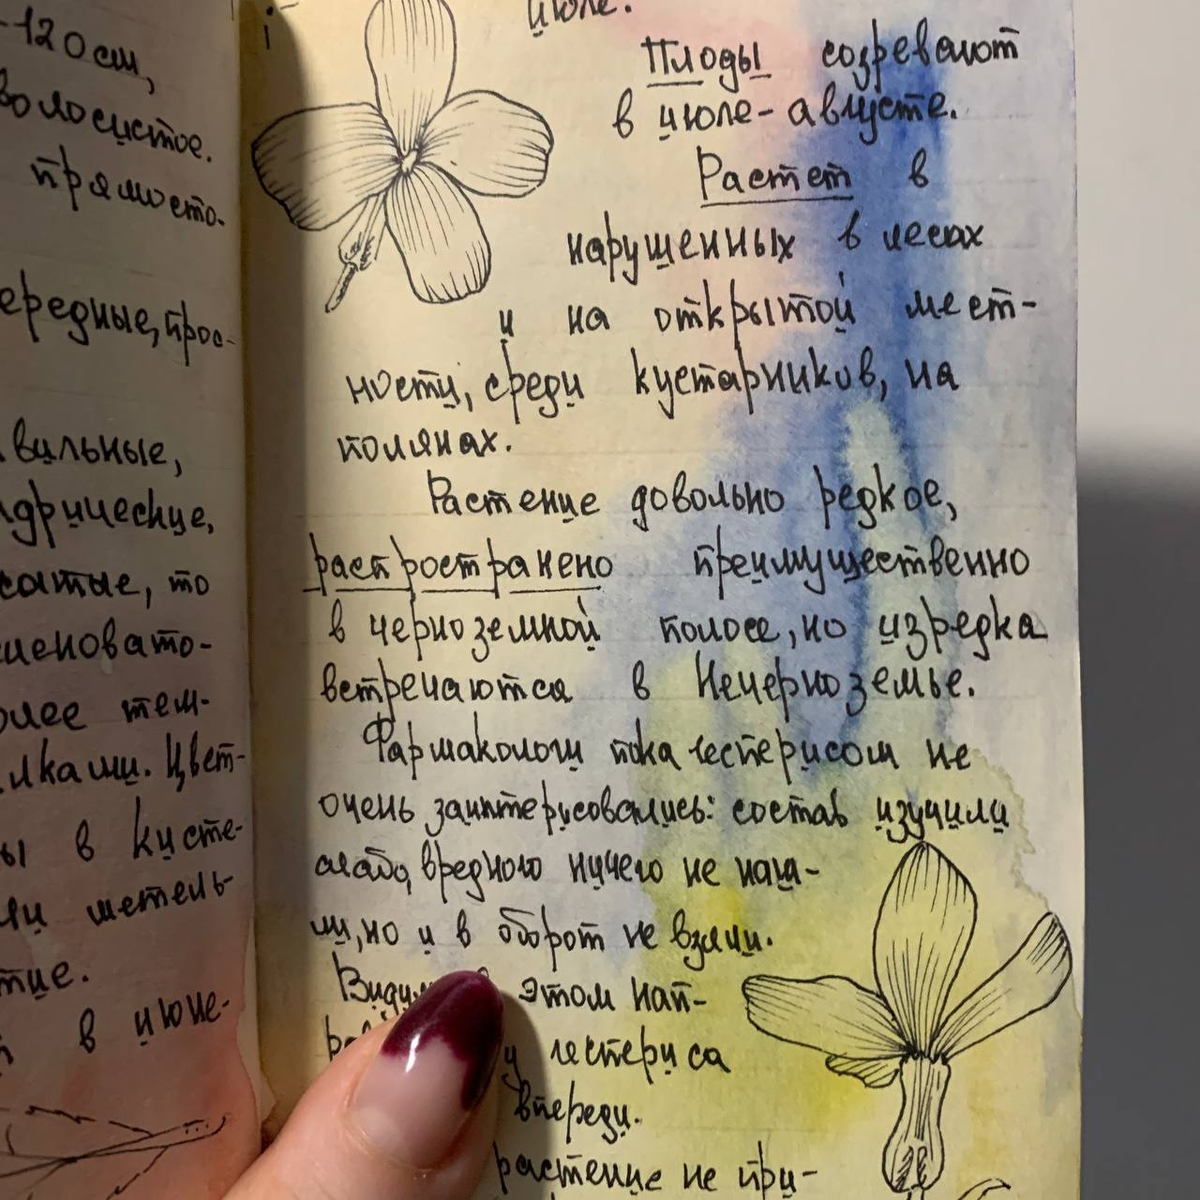 -120см,
волосистое.
прямосто-
ередные, прос-
вильные,
ндрические,
сатые, то
иеновато-
олее тем-
лками. Цвет-
ы в кисте-
ли метель-
тие.
в июне-
июле.
Плоды созревают
в июле-августе.
Растет в
нарушенных в лесах
и на открытой мест-
ности, среди кустарников, на
полянах.
Растение довольно редкое,
распространено преимущественно
в черноземной полосе, но изредка
встречаются в Нечерноземье.
Фармакологи пока гесперисом не
очень заинтерисовались: состав изучили
слабо, вредного ничего не наш-
ли, но и в оборот не взяли.
этом нап-
у гесперiса
впереди.
растение не при-